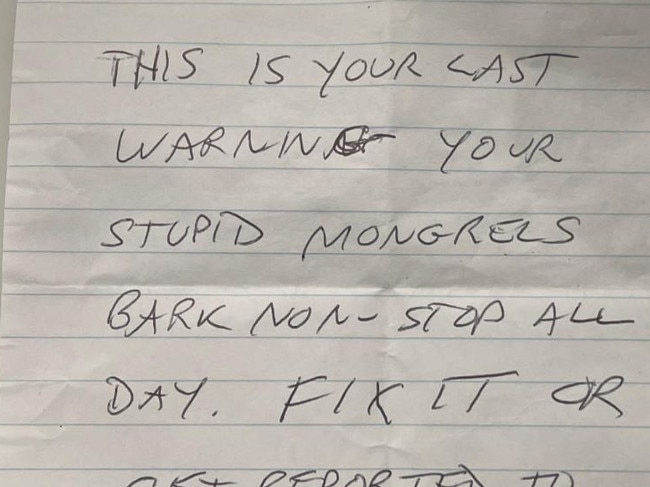 THIS IS YOUR LAST
WARNING YOUR
STUPID MONGRELS
BARK NON-STOP ALL
DAY. FIX IT OR
GET REPORTED TO